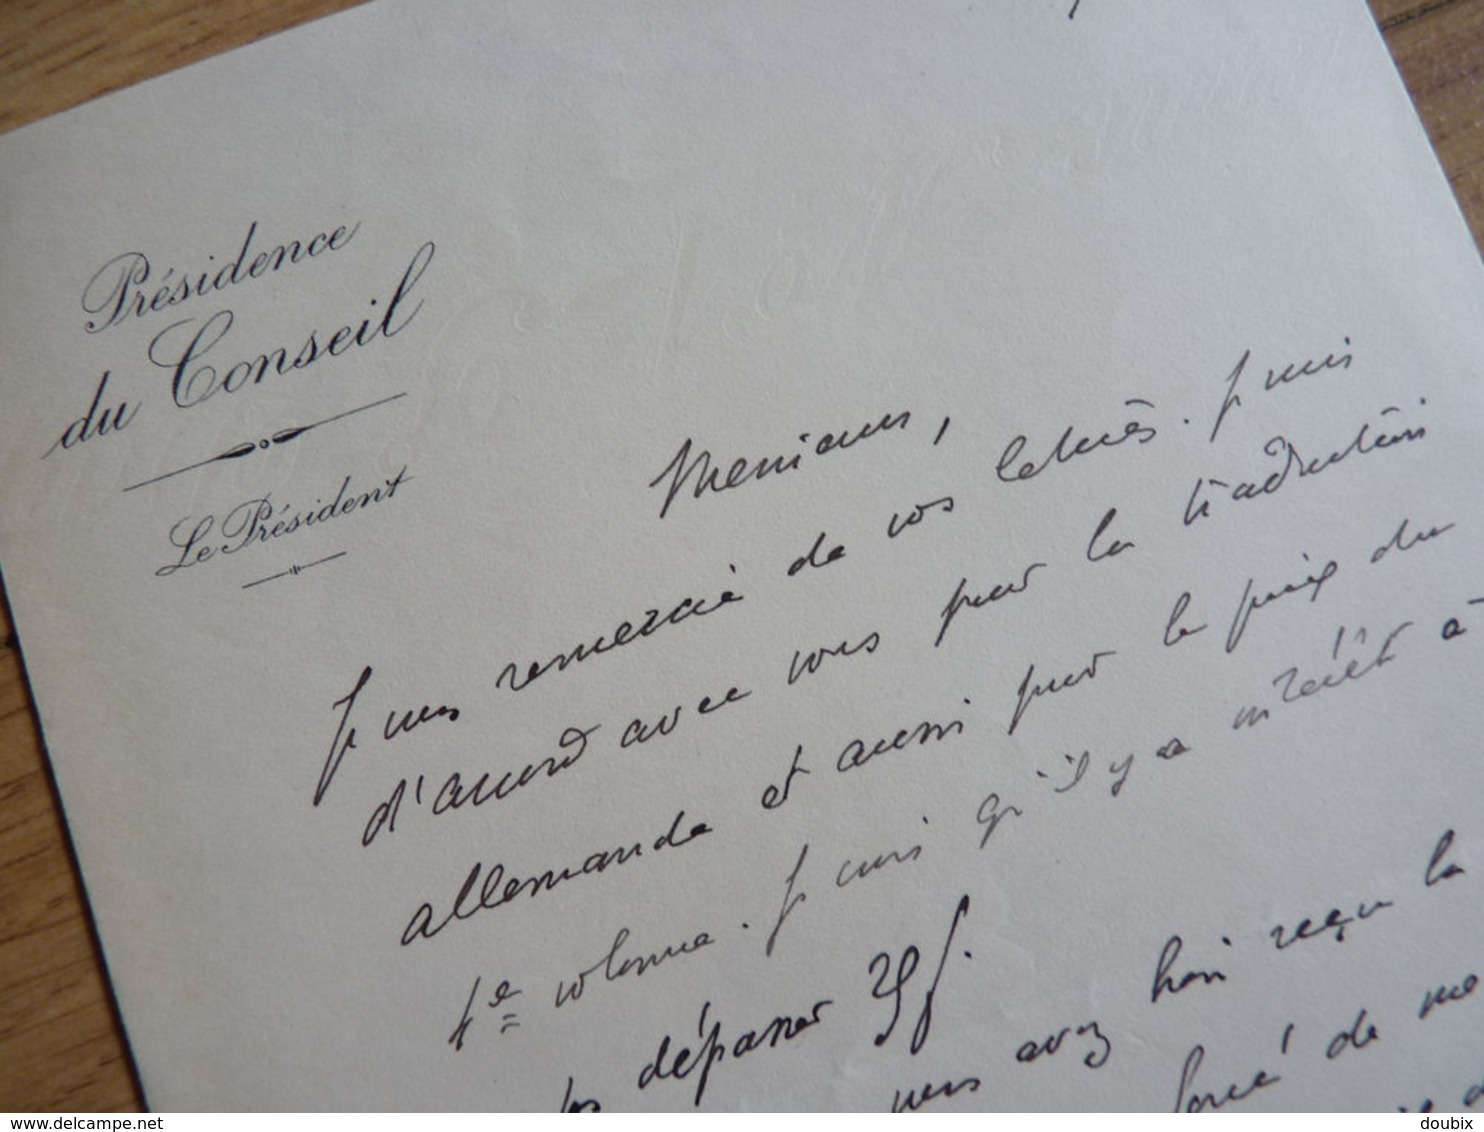 Présidence
du Conseil
Le Président
Messieurs,
Je vous remercie de vos lettres. Je suis
d'accord avec vous pour la traduction
allemande et aussi pour le prix du
4e volume. Je crois qu'il y a intérêt à
pas dépasser
vous avez bien reçu la
forcé de me
delcampe.net
doubix